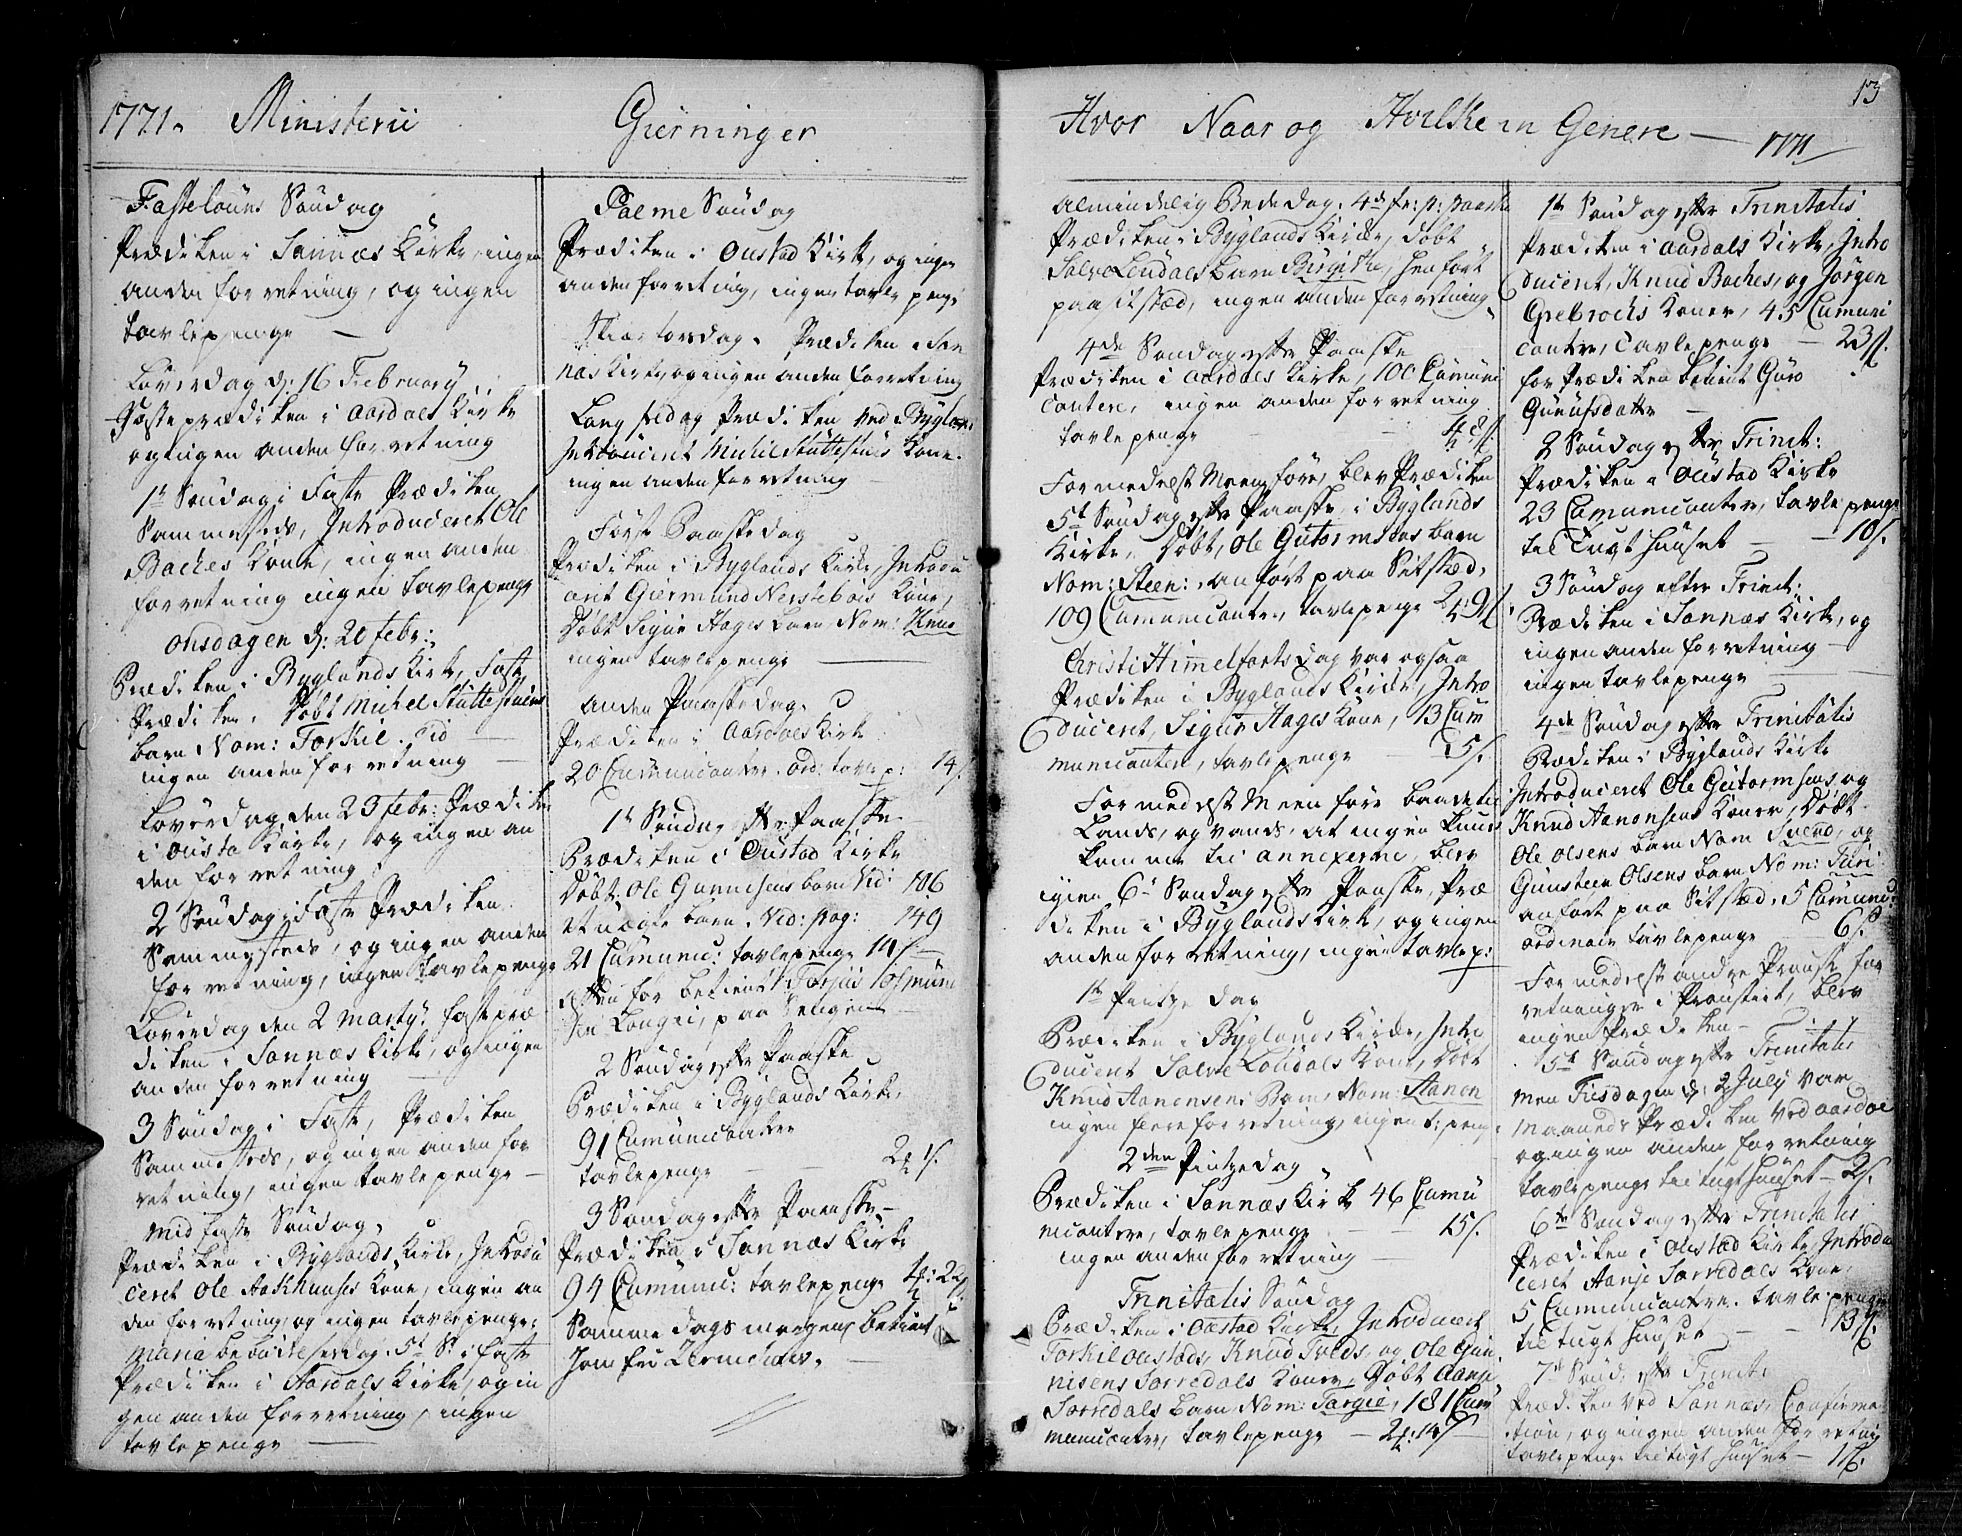 1771. Ministerii Gierninger
Fastelauns Søndag
Prædiken i Sannæs Kirke, ingen
anden forretning, og ingen
tavlepenge —
Løverdag d: 16 February
Faste prædiken i Aardals Kirke
og ingen anden forretning
1te Søndag i Faste Prædiken
Sammesteds, Introduceret Ole
Baches Kone, ingen anden
forretning ingen tavlepenge
Onsdagen d: 20 Febr:
Prædiken i Byglands Kirke, Faste
Prædiken. Døbt Michel
barn Nom: Torkil.
ingen anden forretning —
Løverdag den 23 febr: Prædiken
i Ousta Kirke, og ingen an
den forretning
2 Søndag i Faste Prædiken
Sammesteds, og ingen anden
forretning, ingen tavlepenge
Løverdag den 2 Marty: fastepræ
diken i Sannæs Kirke, og ingen
anden forretning —
3 Søndag i Faste, Prædiken
Sammesteds, og ingen anden for
retning, ingen tavlepenge —
Midfaste Søndag,
Prædiken i Byglands Kirke, Introdu
ceret Ole Aakhuuses Kone, ingen an
den forretning og ingen tavlepenge.
Maria bebudelses dag. 5te S: i faste
Prædiken i Aardals Kirke, og in
gen anden forretning, ingen
tavlepenge —
Palme Søndag
Prædiken i Oustad Kirke, og ingen
anden forretning, ingen tavle penge
Skiærtorsdag. Prædiken i San
næs Kirke, og ingen anden forretning
Lang fredag Prædiken ved Bygland
Introducert Michel Kone.
ingen anden forretning —
Første Paaskedag
Prædiken i Byglands Kirke, Introdu
cert Giermund Nerstebøes Kone,
Døbt Sigur Hages barn Nom: Knud
ingen tavlepenge —
Anden Paaskedag.
Prædiken i Aardals Kirke
20 Cummunicantere. ord: tavlep: 14 s.
1te Søndag efter Paaske
Prædiken i Oustad Kirke
Døbt Ole Gunnisens barn Vid: 186
Et uægte barn. Vid: pag: 149
21 Cumunic: tavlepenge 14 s —
2 Søndag efter Paaske
Prædiken i Byglands Kirke,
91 Cumunicantere
tavlepenge — — 2 1 s.
3 Søndag efter Paaske —
Prædiken i Sannæs Kirke
94 Cumunic: tavlepenge 4: 22 s.
Samme dags morgen betient
Jomfru
13
Hvor Naar og Hvilke in Genere — 1771
Almindelig Bededag. 4de fr: p: Paaske
Prædiken i Byglands Kirke, døbt
Salve Lendals barn Birgithe, henført
paa sit stæd, ingen anden forretning
4de Søndag efter Paaske
Prædiken i Aardals Kirke, 100 Cumuni
cantere, ingen anden forretning
tavlepenge — — 4 8 s.
Formedelst Meenføre, blev Prædiken
5te Søndag efter Paaske i Byglands
Kirke, Døbt, Ole Gutormsens barn
Nom: Steen: anført paa sit stæd,
109 Cumunicanter, tavlepenge 2: 9 s.
Christi Himmelfarts dag var ogsaa
Prædiken i Byglands Kirke, Intro
ducert, Sigur Hages Kone, 13 Cum
municanter, tavlepenge — 5 s.
Formedelst Meenføre baade til
Lands, og vands, at ingen kunde
komme til annexerne, blev
igien 6te Søndag efter Paaske, Præ
diken i Byglands Kirke, og ingen
anden forretning, ingen tavlep:
1te Pintze dag
Prædiken i Byglands Kirke, Intro
ducert Salve Lendals Kone, Døbt
Knud Aanensens Barn, Nom: Aanen
ingen flere forretning, ingen t: penge
2den Pintzedag
Prædiken i Sannæs Kirke 46 Cumu
nicantere, tavlepenge — 15 s.
ingen anden forretning —
Trinitatis Søndag
Prædiken i Oustad Kirke, Introducert
Torkil Oustads, Knud Tveds, og Ole Gun
nisens Sørredals Koner, Døbt Aanje
Sørredals barn Nom: Targie, 181 Cum
municanter, tavlepenge — 2: 14 s
1te Søndag efter Trinitatis
Prædiken i Aardals Kirke, Intro
ducert, Knud Baches, og Jørgen
Grebrochs Koner, 45 Cumuni
cantere, Tavlepenge — 23 s.
for Prædiken betient Guro
2 Søndag efter Trinit:
Prædiken i Oustad Kirke
23 Cumunicanter, tavle penge
til Tugthuuset — 10 s.
3 Søndag efter Trinit:
Prædiken i Sannæs Kirke, og
ingen anden forretning —
ingen tavlepenge —
4de Søndag efter Trinitatis
Prædiken i Byglands Kirke
Introduceret Ole Gutormsens og
Knud Aanonsens Koner, Døbt
Ole Olsens barn Nom Svend, og
Gunsteen Olsens barn Nom: Turi
anført paa sit stæd, 5 Cumuni:
ordinair tavlepenge — 6 s.
Formedelst andre Prouste for
retninger i Proustiet, blev
ingen Prædiken —
5te Søndag efter Trinitatis
Men Tirsdagen d: 2 July var
Maaneds Prædiken ved Aardal
og ingen anden forretning
tavlepenge til tugthuuset — 2 s.
6te Søndag efter Trinitatis
Prædiken i Oustad Kirke Introdu
ceret Aanje Sørredals Kone,
5 Cumunicantere. tavle penge
til tugt huuset — — 13 s.
7de Sønd: efter Trinit:
Prædiken ved Sannæs, Confirma
tion, og ingen anden forretning
tavlepenge til tugt huuset —